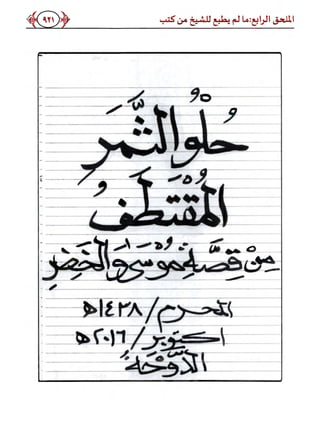 الملحق الرابع:ما لم يطبع للشيخ من كتب
٩٢١
حُلْوُ الثَّمَرِ
المُقْتَطَفُ
مِنْ قِصَّةِ مُوسَىٰ وَالخَضِرِ
المحرم/١٤٣٨هـ
اكتوبر/٢٠١٦هـ
الدَّوْحَةُ